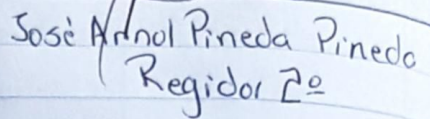 José Arnol Pineda Pineda
Regidor 2º